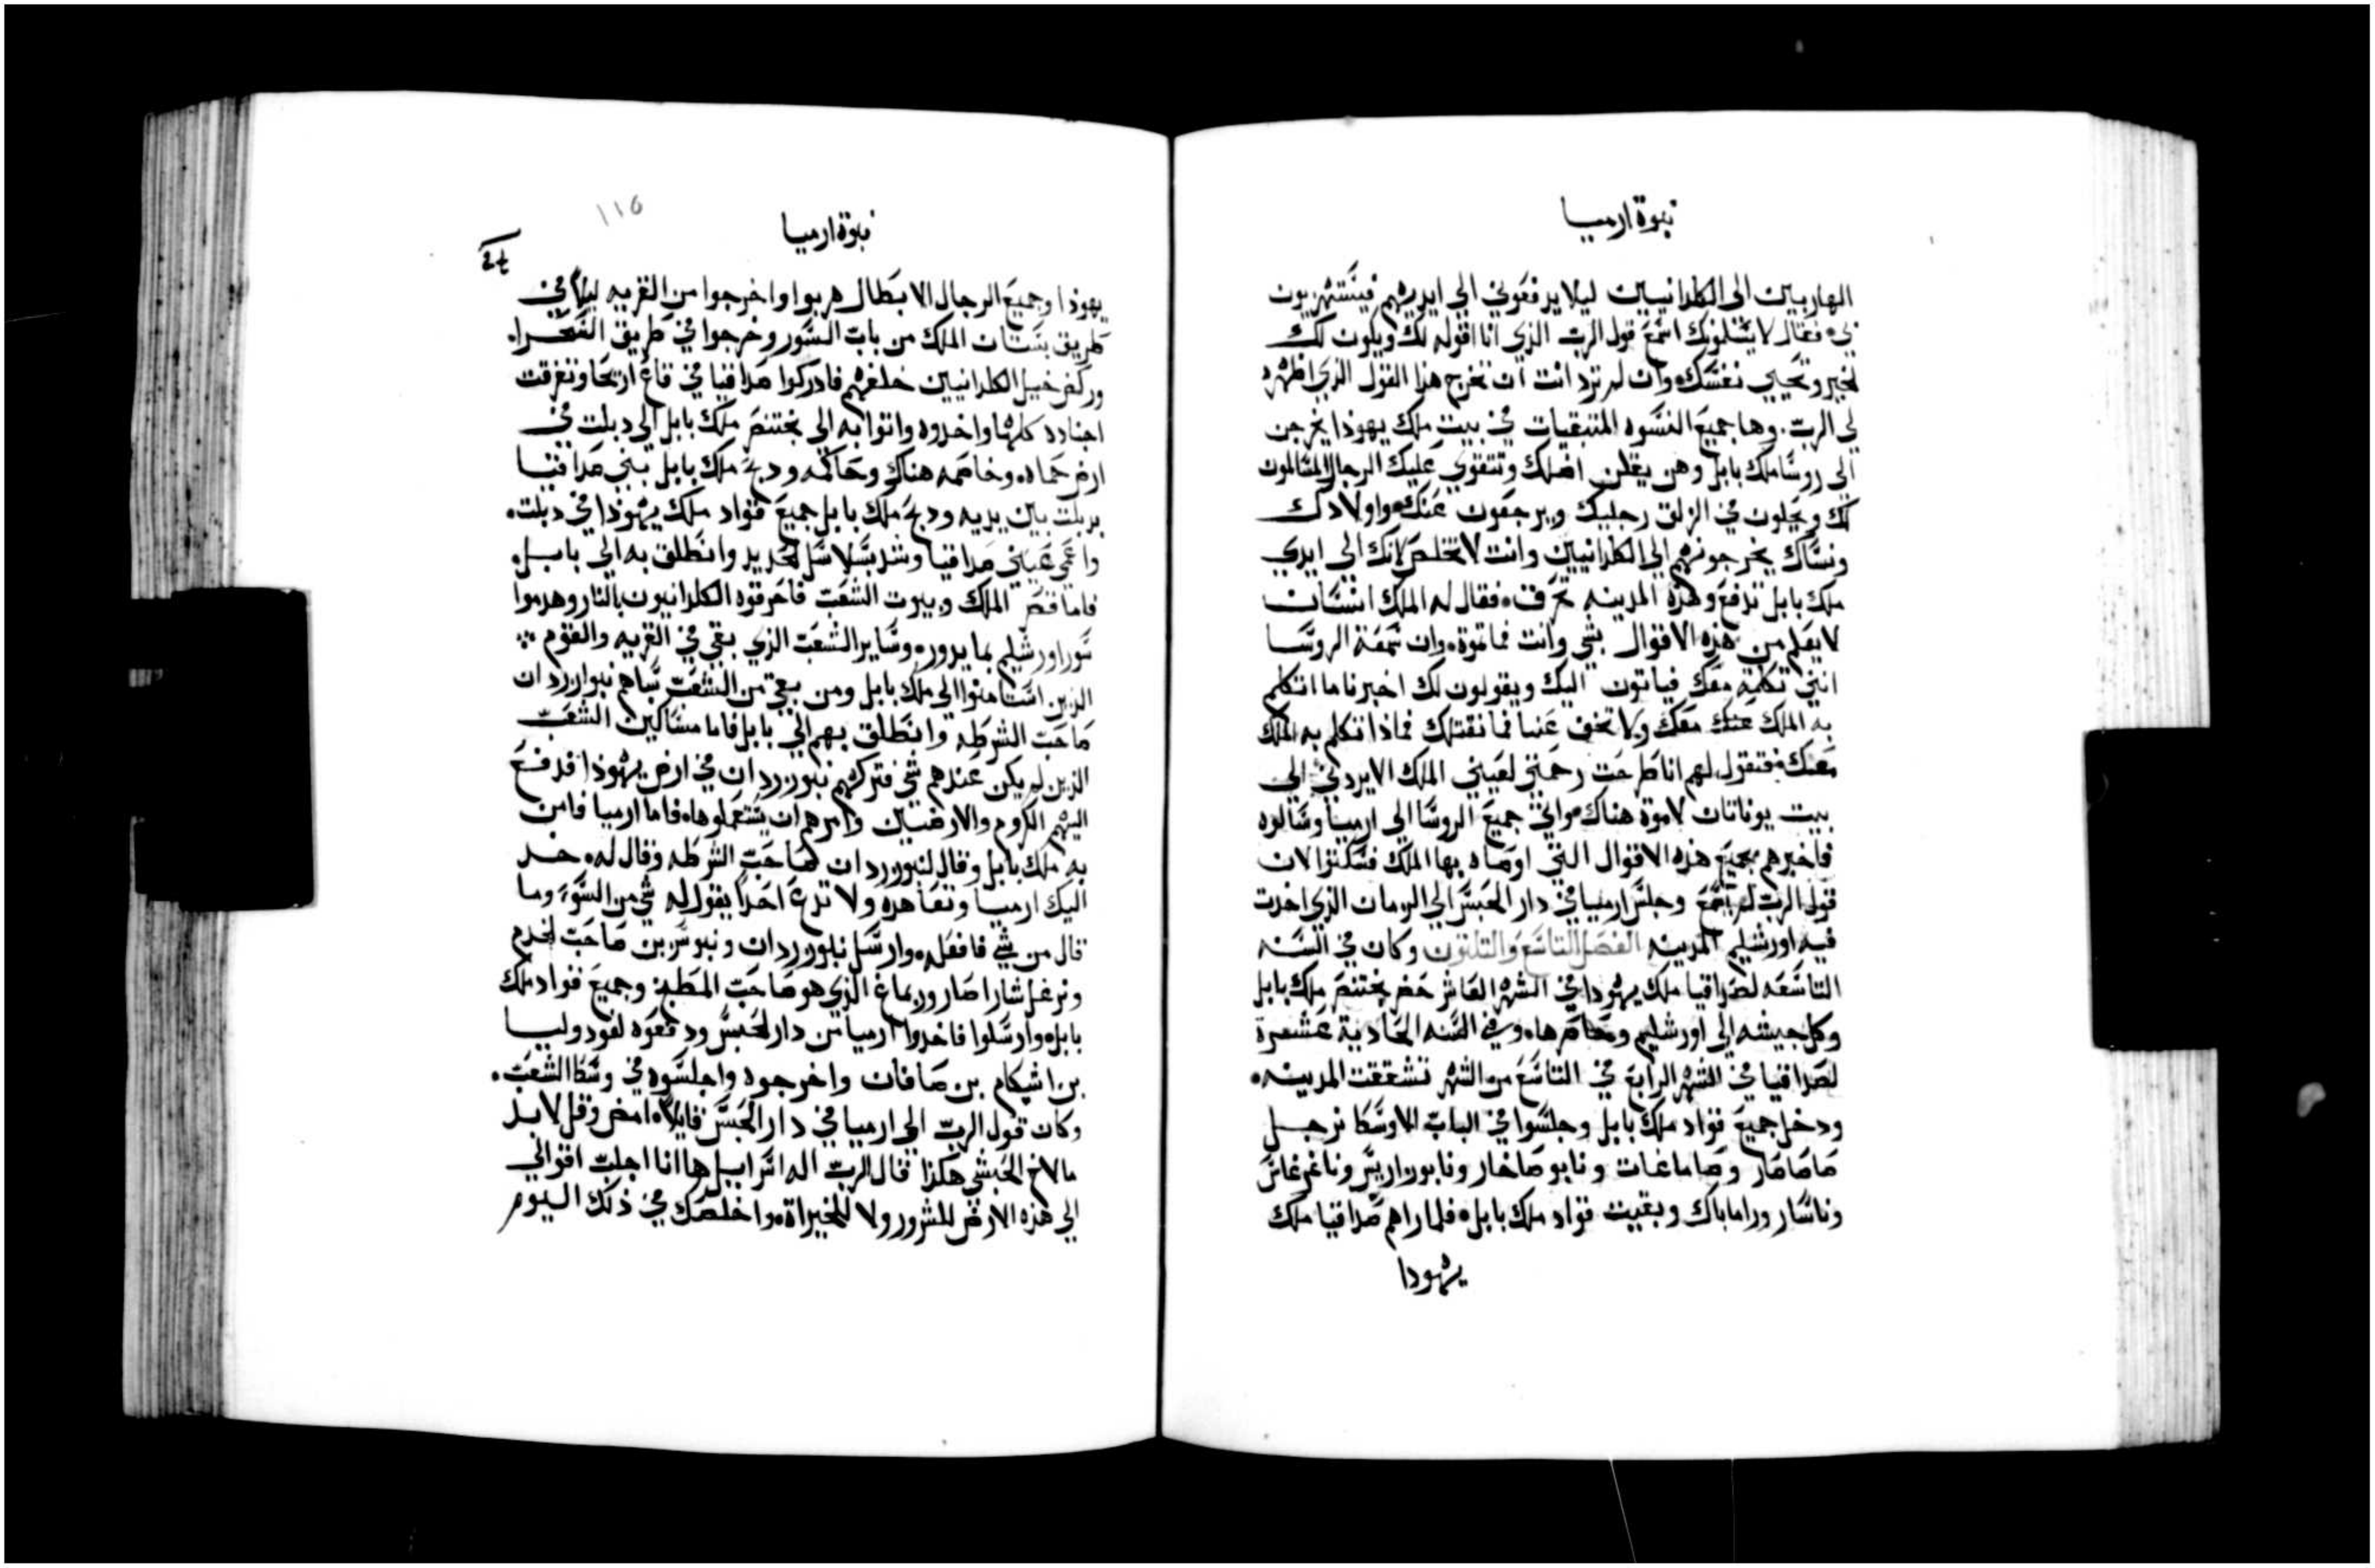 نبوة ارميا
الهاربين الى الكلدانيين ليلا يدفعوني الي ايديهم فيستهزيون
بي فقال لا يسلمونك اسمع قول الرب الذي انا اقوله لك ويكون لك
لخير وتحيي نفسك وان لم ترد انت ان تخرج هذا القول الذي اظهره
لي الرب. وها جميع النسوه المتبقيات في بيت ملك يهوذا يخرجن
الى روسا ملك بابل وهن يقلن اضلك وتتقوي عليك الرجال المسالمون
لك ويحلون في الزلق رجليك ويرجعون عنك واولادك
ونساك يخرجونهم الي الكلدانيين وانت لا تخلص لانك الي ايدي
ملك بابل تدفع وهذه المدينه تحرق فقال له الملك انسان
لا يعلم من هذه الاقوال بشي وانت فما تموة وان سمعة الروسا
انني تكلمة معك فياتون اليك ويقولون لك اخبرنا ما اتكلم
به الملك معك ولا تخف عنا فما نقتلك فماذا تكلم به الملك
معك فتقول لهم انا طرحت رحمتي لعيني الملك الا يردني الي
بيت يوناتان لاموة هناك واتي جميع الروسا الي ارميا وسالوه
فاخبرهم بجميع هذه الاقوال التي اوصاه بها الملك فسكتوا لان
قول الرب لم يسمع وجلس ارميا في دار الحبس الي الزمان الذي اخدت
فيه اورشليم المدينه الفصل التاسع والتلتون وكان في السنه
التاسعه لصداقيا ملك يهودا في الشهر العاشر حضر بختنصر ملك بابل
وكل جيشه الي اورشليم وحاصرها وفي السنه الحادية عشرة
لصداقيا في الشهر الرابع في التاسع من الشهر تشققت المدينه
ودخل جميع قواد ملك بابل وجلسوا في الباب الاوسط نرجل
صاصار وصاماغات ونابو صاخار ونابوراريس وناغرغاس
وناسار وراماباك وبقيت قواد ملك بابل فلما راهم صداقيا ملك
يهودا
١١٥
نبوة ارميا
يهوذا وجميع الرجال الابطال هربوا واخرجوا من القريه ليلا في
طريق بستان الملك من باب السور وخرجوا في طريق الصحرا
وركض خيل الكلدانيين خلفهم فادركوا صداقيا في قاع اريحا وتفرقت
اجناده كلها واخدوه واتوا به الي بختنصر ملك بابل الي دبلت في
ارض حماه وخاصمه هناك وحاكمه ودبح ملك بابل بني صداقيا
بدبلت بين يديه ودبح ملك بابل جميع قواد ملك يهوذا في دبلت
واعمي عيني صداقيا وشد بسلاسل الحديد وانطلق به الي بابل
فاما قصر الملك وبيوت الشعب فاحرقوه الكلدانيون بالنار وهدموا
سور اورشليم بما يدوره وساير الشعب الذي بقي في القريه والقوم
الذين استامنوا الي ملك بابل ومن بقي من الشعب سباهم نبوزردان
صاحب الشرطه وانطلق بهم الي بابل فاما مساكين الشعب
الذين لم يكن عندهم شي فتركهم نبوزردان في ارض يهوذا قد دفع
اليهم الكروم والارضين وامرهم ان يستعملوها فاما ارميا فامن
به ملك بابل وقال لنبوزردان صاحب الشرطه وقال له خد
اليك ارميا وتعاهده ولا تدع احدا يقول له شي من السوء وما
قال من شي فافعله وارسل نبوزردان ونبوسربن صاحب الخدم
ونرغل شاراصار وربماغ الذي هو صاحب المطبخ وجميع قواد ملك
بابل وارسلوا فاخدوا ارميا من دار الحبس ودفعوه لغودوليا
بن اشيكام بن صافان واخرجوه واجلسوه في وسط الشعب
وكان قول الرب الي ارميا في دار الحبس قايلا امض وقل لابد
مالاخ الحبشي هكذا قال الرب اله اسراييل ها انا اجلب اقوالي
الي هذه الارض للشرور ولا للخيراة واخلصك في ذلك اليوم